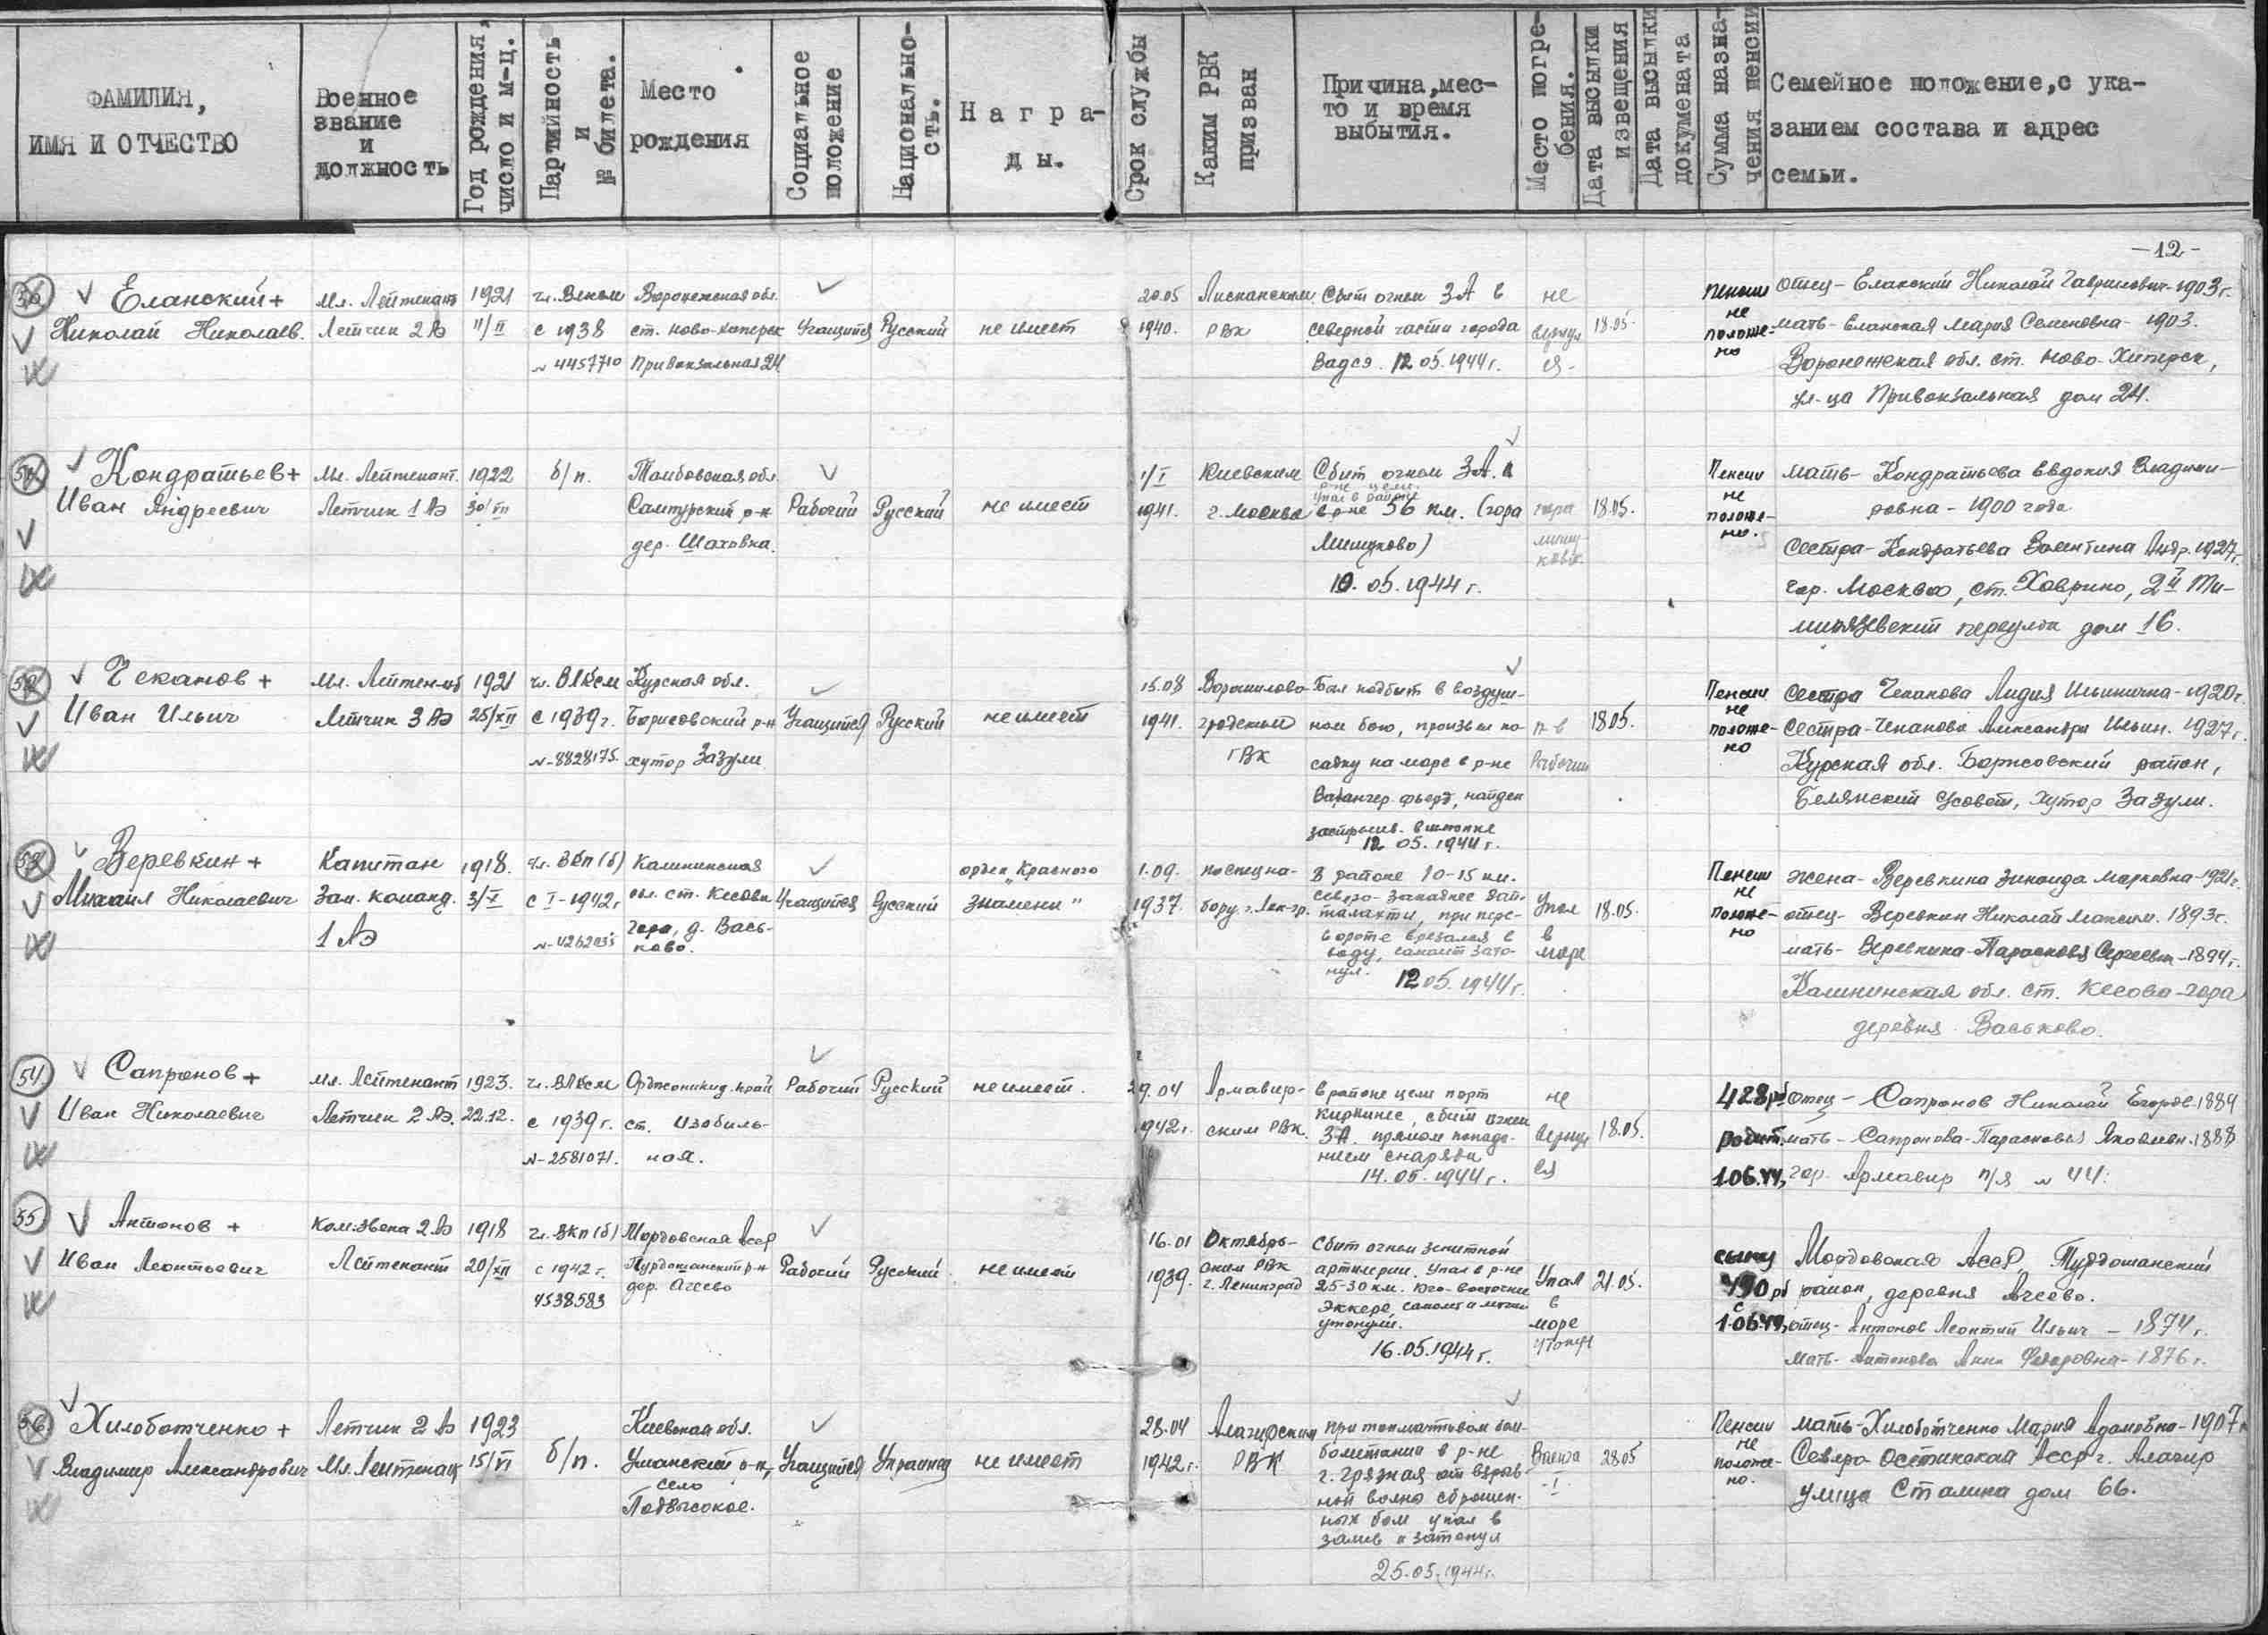 ФАМИЛИЯ,
ИМЯ И ОТЧЕСТВО
Военное
звание
и
должность
Год рождения,
число и м-ц.
Партийность
и
№ билета.
Место
рождения
Социальное
положение
Национально-
сть.
Награ-
ды.
Срок службы
Каким РВК
призван
Причина, мес-
то и время
выбытия.
Место погре-
бения.
Дата высылки
извещения
Дата высылки
документа
Сумма назна-
чения пенсии
Семейное положение, с ука-
занием состава и адрес
семьи.
-12-
Еланский +
Николай Николаев.
Мл. Лейтенант
Летчик 2 АЭ
1921
11/II
чл. ВЛКСМ
с 1938
№ 4457710
Воронежская обл.
ст. Ново-Хоперск
Привокзальная 24
Учащийся
Русский
не имеет
20.05
1940.
Лискинским
РВК
Сбит огнем ЗА в
северной части города
Вадсэ. 12.05.1944 г.
не
вернул
ся-
18.05.
Пенсии
не
положе-
но
отец - Еланский Николай Гаврилович - 1903 г.
мать - Еланская Мария Семеновна - 1903.
Воронежская обл. ст. Ново-Хоперск,
ул-ца Привокзальная дом 24.
Кондратьев +
Иван Андреевич
Мл. Лейтенант.
Летчик 1 АЭ
1922
30/VII
б/п.
Тамбовская обл.
Сампурский р-н
дер. Шаховка.
Рабочий
Русский
не имеет
1/I
1941.
Киевским
г. Москва
Сбит огнем ЗА. в
р-не цели.
Упал в районе
36 км. (гора
Мишуково)
10.05.1944 г.
гора
мишу-
ково.
18.05.
Пенсии
не
положе-
но.
мать - Кондратьева Евдокия Владими-
ровна - 1900 года
Сестра - Кондратьева Валентина Андр. 1927 г.
гор. Москва, ст. Ховрино, 2й Ти-
мирязевский переулок дом 16.
52
Чеканов +
Иван Ильич
Мл. Лейтен-нт
Летчик 3 АЭ
1921
25/XII
чл. ВЛКСМ
с 1939 г.
№-8828175.
Курская обл.
Борисовский р-н
хутор Зазули
Учащийся
Русский
не имеет
15.08
1941.
Ворошилово-
градским
ГВК
Был подбит в воздуш-
ном бою, произвел по-
садку на море в р-не
Варангер фьорд, найден
застрелив. в шлюпке
12.05.1944 г.
п-в
Рыбачий
18.05.
Пенсии
не
положе-
но
Сестра Чеканова Лидия Ильинична - 1920 г.
Сестра - Чеканова Александра Ильин. 1927 г.
Курская обл. Борисовский район,
Белянский с/совет, хутор Зазули.
53
Веревкин +
Михаил Николаевич
Капитан
Зам. команд.
1 АЭ
1918.
3/X
чл. ВКП(б)
с I-1942 г.
Калининская
обл. ст. Кесова
гора, д. Вась-
ково.
Учащийся
Русский
орден "Красного
Знамени"
1.09.
1937.
по спецна-
бору г. Лен-гр.
В районе 10-15 км.
северо-западнее
при пере-
вороте врезался в
воду, самолет зато-
нул.
12.05.1944 г.
Упал
в
море
18.05.
Пенсии
не
положе-
но
жена - Веревкина Зинаида Марковна - 1921 г.
отец - Веревкин Николай Максим. 1893 г.
мать - Веревкина - Парасковья Сергеевн - 1894 г.
Калининская обл. ст. Кесова-гора
деревня Васьково.
54
Сапронов +
Иван Николаевич
мл. Лейтенант
Летчик 2 АЭ.
1923.
22.12.
чл. ВЛКСМ
с 1939 г.
№-2581071.
Орджоникид. край
ст. Изобиль-
ная.
Рабочий
Русский
не имеет.
29.04
1942 г.
Армавир-
ским РВК.
в районе цели порт
Киркинес, сбит огнем
ЗА. прямым попада-
нием снаряда
14.05.1944 г.
не
вернул
ся
18.05.
428 рб
родит.
1.06.44,
отец - Сапронов Николай Егоров. 1884
мать - Сапронова - Парасковья Яковлевн. 1888
гор. Армавир п/я № 44.
55
Антонов +
Иван Леонтьевич
Ком. звена 2 АЭ
Лейтенант
1918
20/XII
чл. ВКП(б)
с 1942 г.
4538583
Мордовская АССР
Пурдошанский р-н
дер. Агеево
Рабочий
Русский
не имеет
16.01
1939.
Октябрь-
ским РВК
г. Ленинград
Сбит огнем зенитной
артилерии. Упал в р-не
25-30 км. юго-восточнее
Эккерэ, самолет и летчик
утонули.
16.05.1944 г.
Упал
в
море
утонул
21.05.
сыну
490 рб
с
1.06.44,
Мордовская АССР, Пурдошанский
район, деревня Агеево.
отец - Антонов Леонтий Ильич - 1874 г.
Мать - Антонова Анна Федоровна - 1876 г.
56
Хилоботченко +
Владимир Александрович
Летчик 2 АЭ
Мл. Лейтенант
1923
15/VI
б/п.
Киевская обл.
Уманский р-н,
село
Подвысокое.
Учащийся
Украинец
не имеет
28.04
1942 г.
Алагирским
РВК
При топмачтовом бом-
бометании в р-не
г. Грязная от взрыв-
ной волны сброшен-
ных бом упал в
залив и затонул
25.05.1944 г.
Ваенга
-I-
28.05
Пенсии
не
положе-
но.
мать - Хилоботченко Мария Адамовна - 1907 г.
Северо-Осетинская АССР г. Алагир
улица Сталина дом 66.